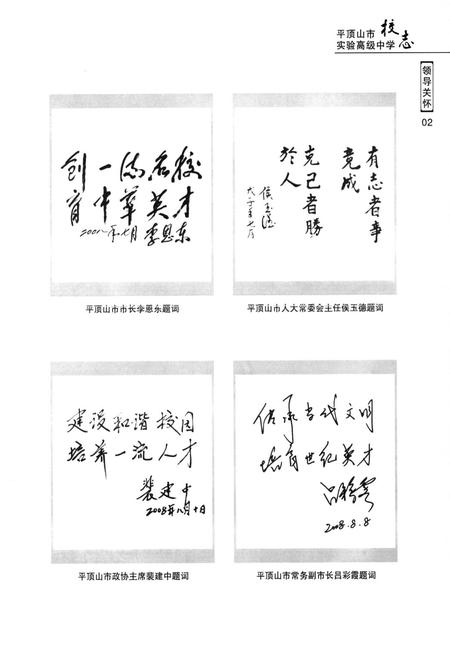 平顶山市
实验高级中学
校志
【领导关怀】
02
创一流名校
育中华英才
2008年七月 李恩东
平顶山市市长李恩东题词
有志者事
竟成
克己者勝
於人
侯玉德
平顶山市人大常委会主任侯玉德题词
建设和谐校园
培养一流人才
裴建中
2008年八月十日
平顶山市政协主席裴建中题词
传承当代文明
培育世纪英才
吕彩霞
2008.8.8
平顶山市常务副市长吕彩霞题词